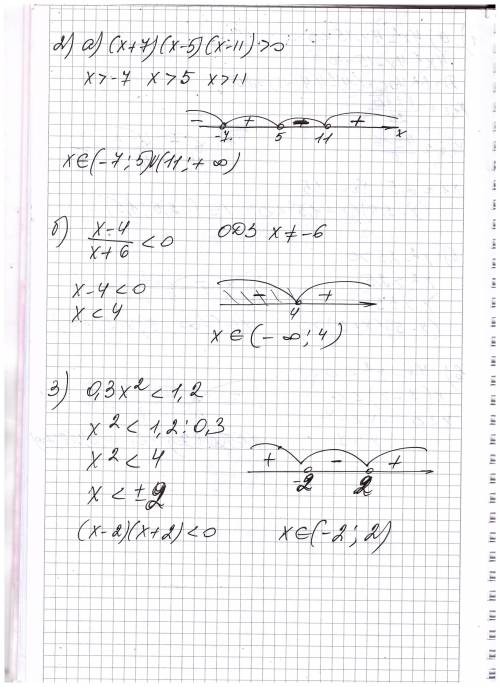 2) а) (x+7)(x-5)(x-11)>0
x>-7 x>5 x>11
- + - +
-7 5 11 x
x∈(-7;5)∪(11;+∞)
б) x-4/x+6 <0 ОДЗ x≠-6
x-4<0
x<4
- +
4
x∈(-∞;4)
3) 0,3x²<1,2
x²<1,2:0,3
x²<4
x<±2
+ - +
-2 2
(x-2)(x+2)<0 x∈(-2;2)